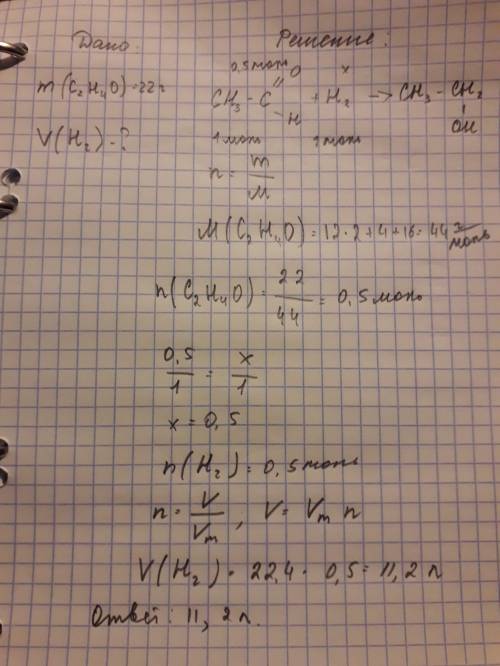 Дано: Решение:
m(C₂H₄O)=22г
V(H₂)-?
0,5моль x
CH₃-C=O-H + H₂ → CH₃-CH₂-OH
1моль 1моль
n = m/M
M(C₂H₄O)=12·2+4+16=44 г/моль
n(C₂H₄O)=22/44=0,5моль
0,5/1 = x/1
x=0,5
n(H₂)=0,5моль
n=V/Vm, V=Vm n
V(H₂)=22,4·0,5=11,2л
Ответ: 11,2л.